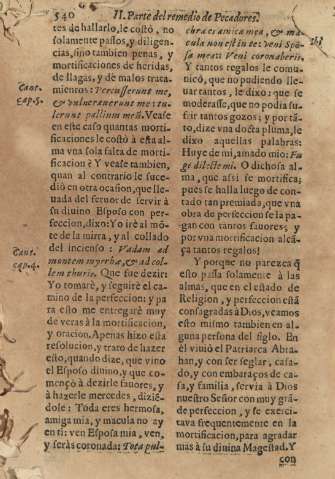 540 II. Parte del remedio de Pecadores.
tes de hallarlo, le costò, no
solamente passos, y diligen-
cias, sino tambien penas, y
mortificaciones de heridas,
de llagas, y de malos trata-
mientos: Percusserunt me,
Cant.
cap. 5.
& vulneraverunt me: tu-
lerunt pallium meũ. Vease
en este caso quantas mortifi-
caciones le costò à esta al-
ma vna sola falta de morti-
ficacion? Y vease tambien,
quan al contrario le suce-
diò en otra ocasion, que lle-
vada del fervor de servir à
su divino Esposo con per-
feccion, dixo: Yo irè al mõ-
te de la mirra, y al collado
del incienso: Vadam ad
Cant.
cap. 4.
montem myrrhæ, & ad col-
lem thuris. Que fue dezir:
Yo tomarè, y seguirè el ca-
mino de la perfeccion: y pa
ra esto me entregarè muy
de veras à la mortificacion,
y oracion. Apenas hizo esta
resolucion, y trato de hazer
esto, quando dize, que vino
el Esposo divino, y que co-
mençò à dezirle favores, y
à hazerle mercedes, dizié-
dole: Toda eres hermosa,
amiga mia, y macula no ay
en ti: ven Esposa mia, ven,
y seràs coronada: Tota pul-
chra es amica mea, & ma-
cula non est in te: veni Spõ-
sa mea: Veni coronaberis.
Y tantos regalos le comu-
nicò, que no pudiendo lle-
var tantos, le dixo: que se
moderasse, que no podia su-
frir tantos gozos; y por tã-
to, dize vna docta pluma, le
dixo aquellas palabras:
Huye de mi, amado mio: Fu-
ge dilecte mi. O dichosa al-
ma, que assi se mortifica;
pues se halla luego de con-
tado tan premiada, que vna
obra de perfeccion se la pa-
gan con tantos favores; y
por vna mortificacion alcã-
ça tantos regalos!
Y porque no parezca q̃
esto passa solamente à las
almas, que en el estado de
Religion, y perfeccion estã
consagradas à Dios, veamos
esto mismo tambien en al-
guna persona del siglo. En
èl vivió el Patriarca Abra-
han, y con ser seglar, casa-
do, y con embaraços de ca-
sa, y familia, servia à Dios
nuestro Señor con muy grã-
de perfeccion, y se exerci-
tava frequentemente en la
mortificacion, para agradar
mas à su divina Magestad. Y
con